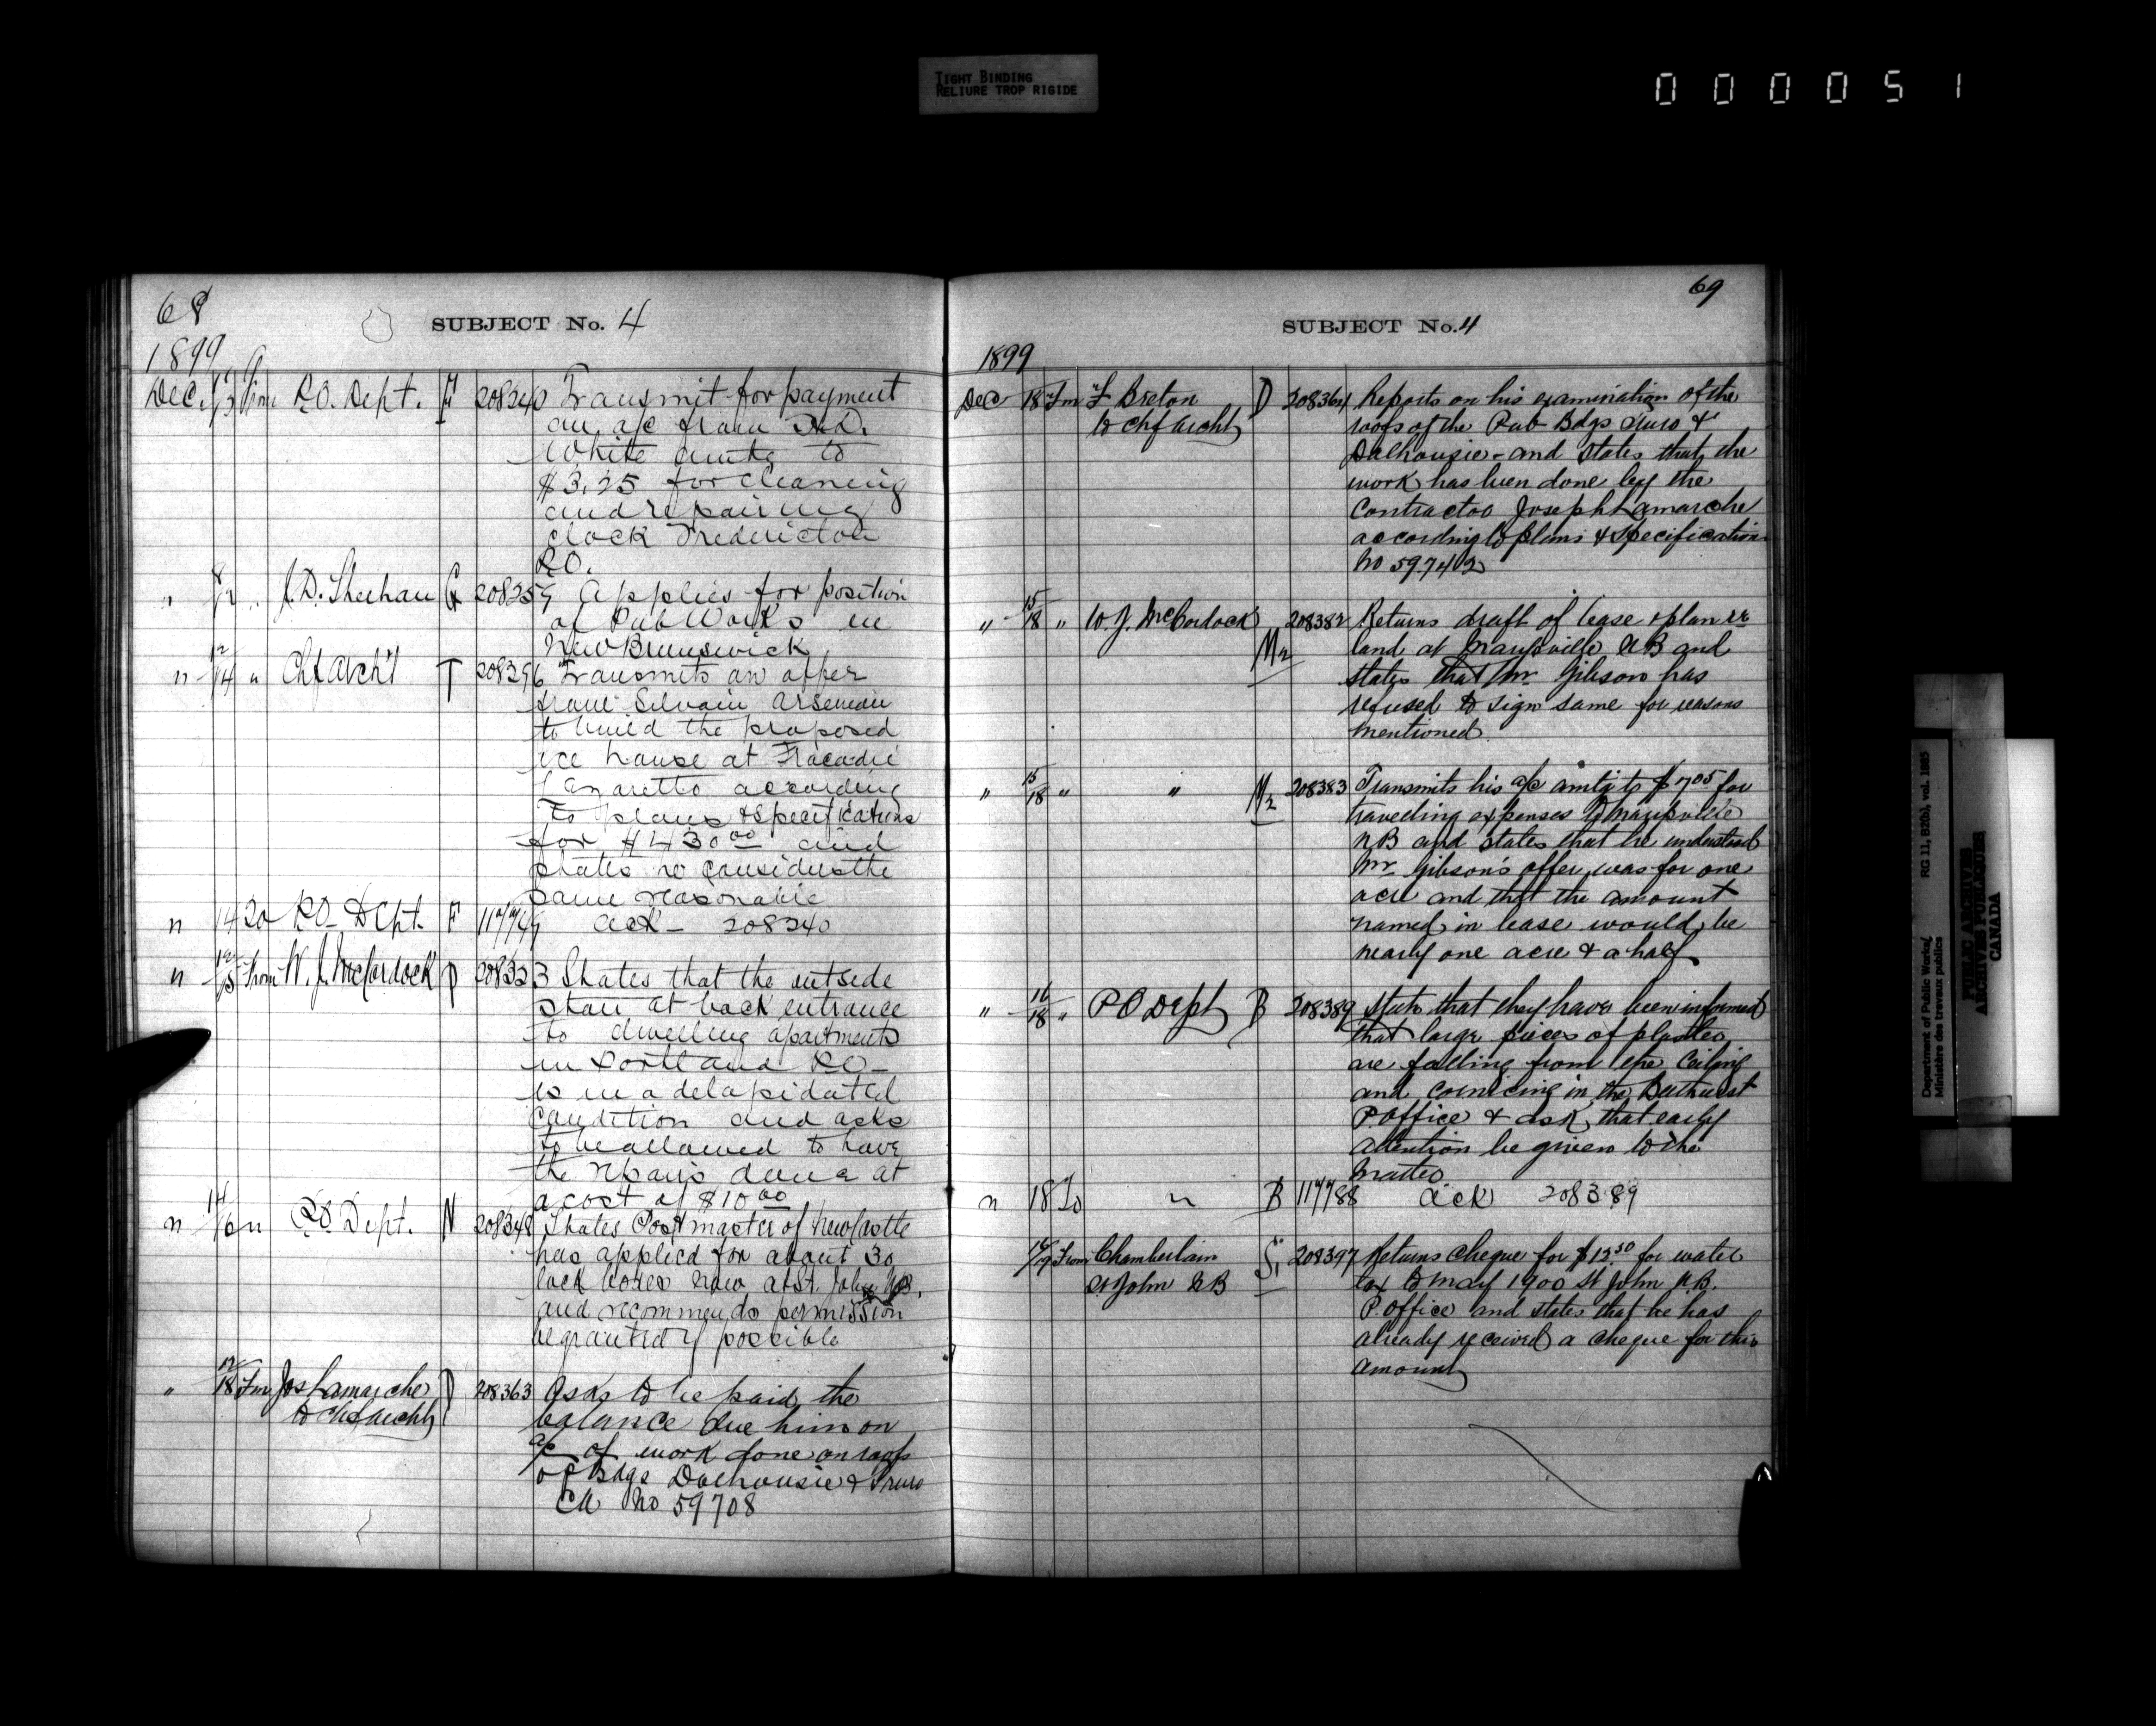 TIGHT BINDING
RELIURE TROP RIGIDE
000051
68
SUBJECT No. 4
1899
Dec. From P.O. Dept. F 208240 Transmit for payment
an a/c from
White amtg to
$3.25 for cleaning
and repairing
clock Fredericton
P.O.
" J.D. Sheehan G 208259 Applies for position
of Pub Works in
New Brunswick
" 12/14 " Chf Archt T 208296 Transmits an offer
from Silvain Arseneau
to build the proposed
ice house at Tracadie
Lazaretto according
to plans & specifications
for $430.00 and
states he considers the
same reasonable
" 14 To P.O. Dept. F 117749 ack - 208240
" 12/15 From W. J. McCordock P 208323 States that the outside
stair at back entrance
to dwelling apartments
in Portland P.O.
is in a delapidated
condition and asks
to be allowed to have
the repairs done at
a cost of $10.00
" 14/16 " P.O Dept. N 208348 States Postmaster of Newcastle
has applied for about 30
lock boxes now at St. John N.B.
and recommends permission
be granted if possible
" 12/18 Fm Jos Lamarche D 208363 Asks to be paid the
to Chf archt balance due him on
a/c of work done on roofs
of Bdgs Dalhousie & Truro
CA No 59708
69
SUBJECT No. 4
1899
Dec 18 Fm F Breton D 208364 Reports on his examination of the
to Chf archt roofs of the Pub Bdgs Truro &
Dalhousie - and states that the
work has been done by the
Contractor Joseph Lamarche
according to plans & specification
No 59742
" 15/18 " W. J. McCordock M2 208382 Returns draft of lease & plan re
land at Marysville N B and
states that Mr Gibson has
refused to sign same for reasons
mentioned.
" 15/18 " " M2 208383 Transmits his a/c amtg to $7.05 for
travelling expenses to Marysville
N B and states that he understood
Mr Gibson's offer was for one
acre and that the amount
named in lease would be
nearly one acre & a half
" 16/18 " P O Dept B 208389 State that they have been informed
that large pieces of plaster
are falling from the ceiling
and cornicing in the Bathurst
P. office & ask that early
attention be given to the
matter
" 18 To " B 117788 ack 208389
From Chamberlain S1 208397 Returns cheque for $12.50 for water
St John N B tax to May 1900 St John N.B.
P. office and states that he has
already received a cheque for this
amount
Department of Public Works/ RG 11, B2(b), vol. 1885
Ministère des travaux publics
PUBLIC ARCHIVES
ARCHIVES PUBLIQUES
CANADA